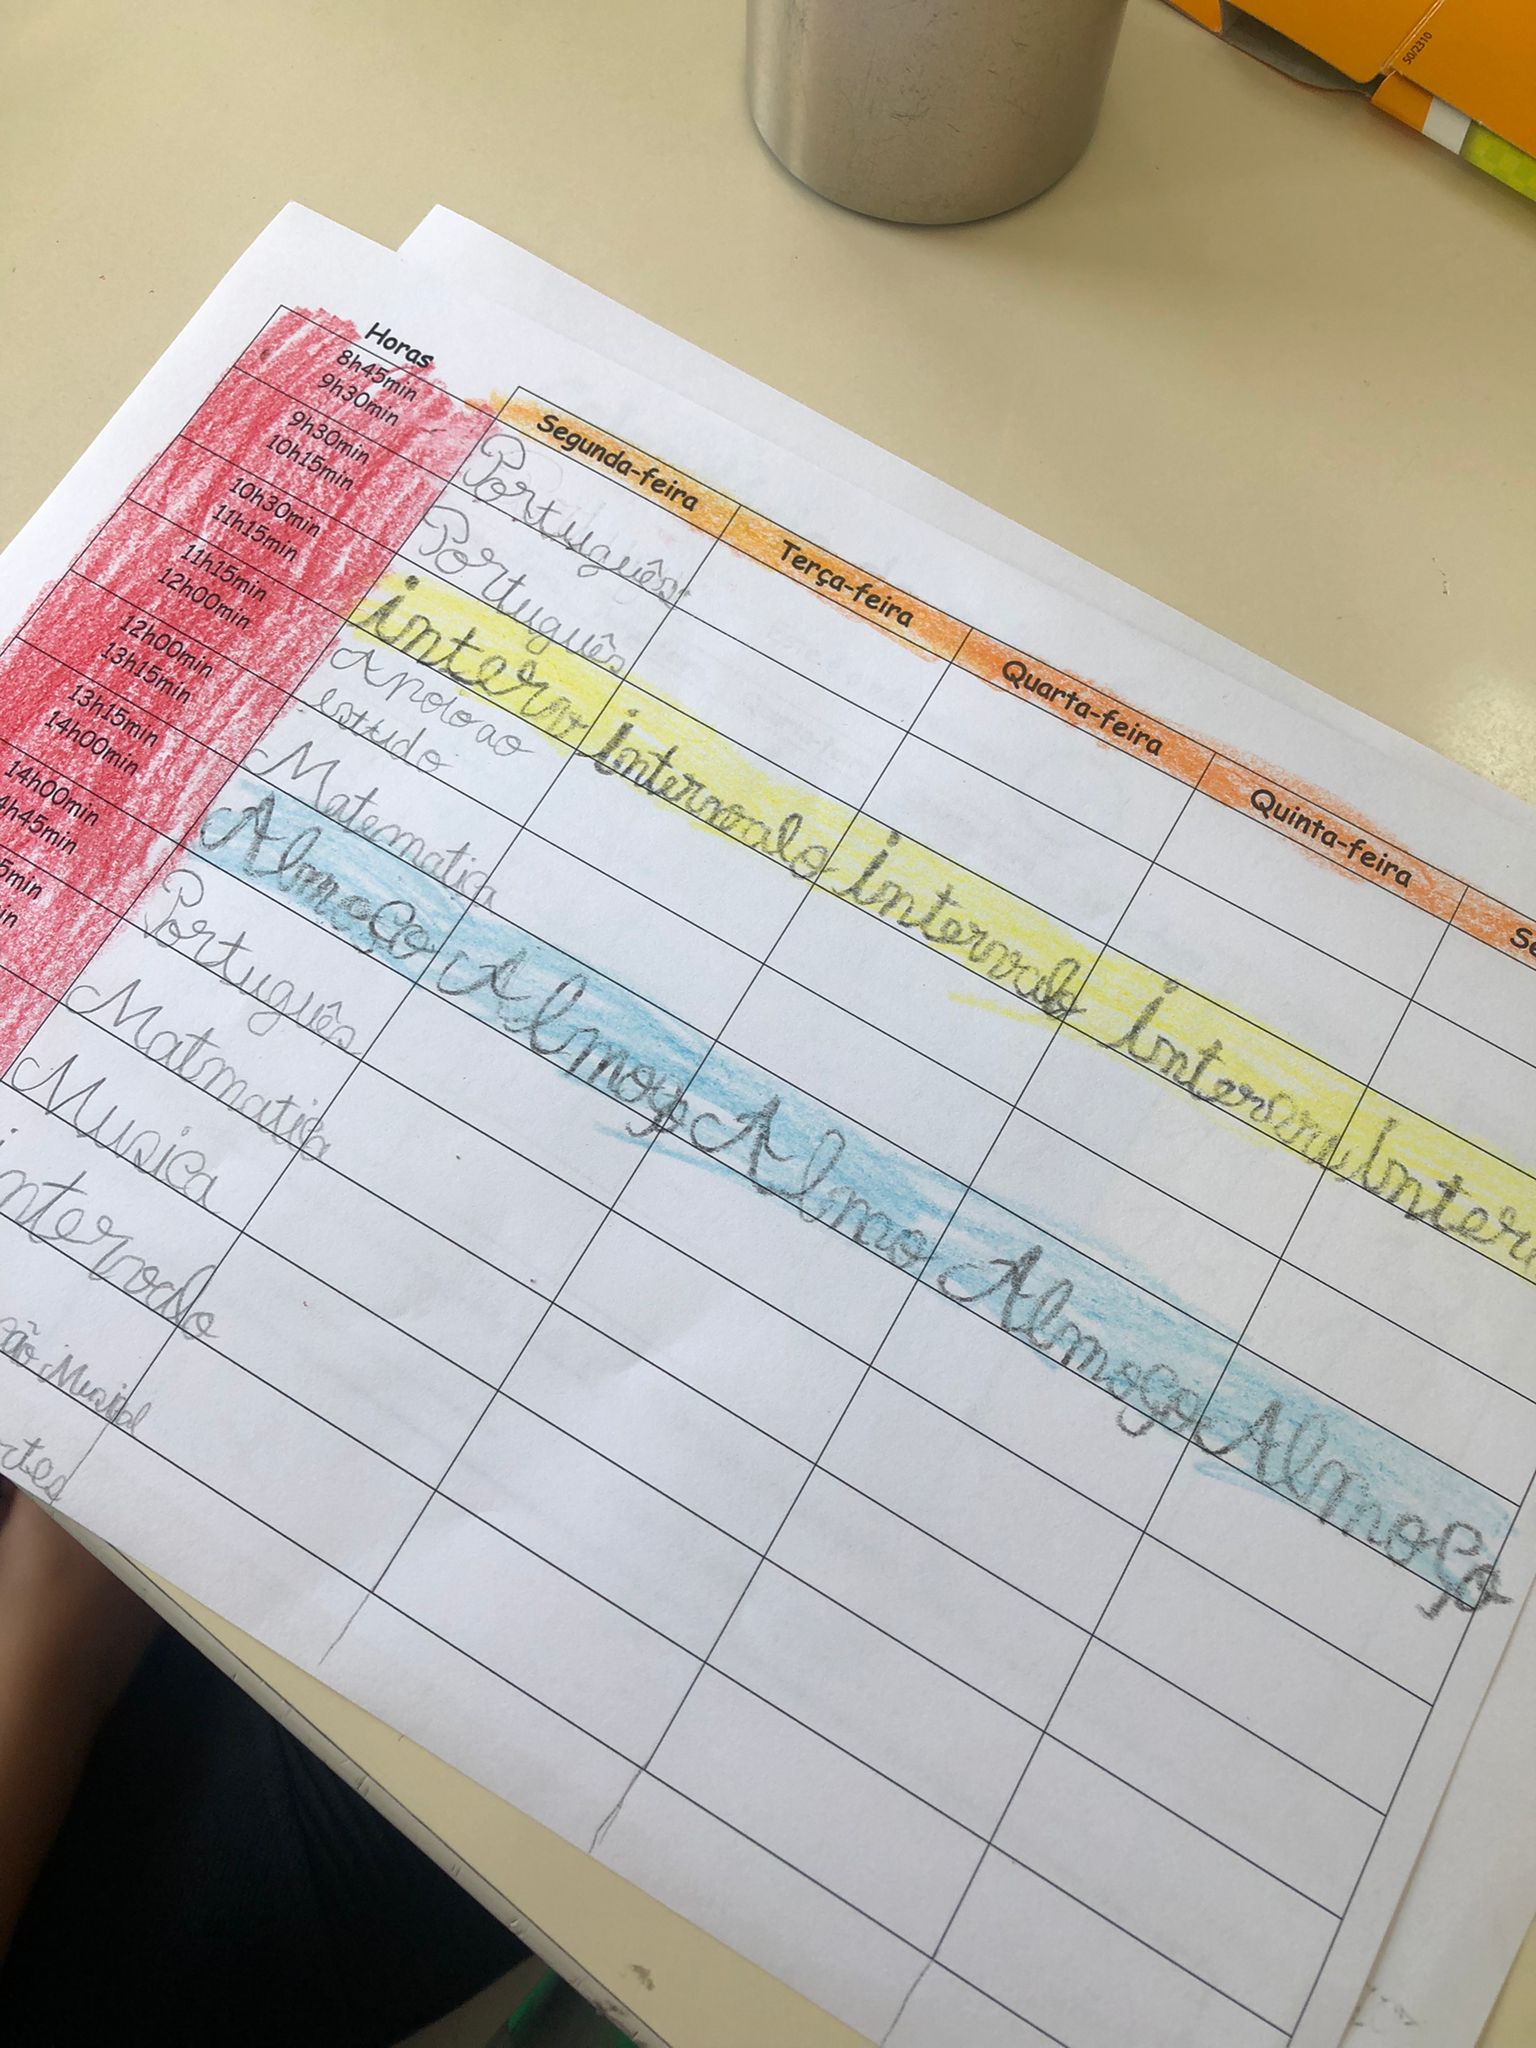 50/2310
Horas
8h45min
9h30min
9h30min
10h15min
10h30min
11h15min
11h15min
12h00min
12h00min
13h15min
13h15min
14h00min
14h00min
4h45min
5min
in
Segunda-feira Terça-feira Quarta-feira Quinta-feira Se
Português
Português
interv intervalo interval interv inter
Apoio ao
estudo
Matematica
Almoço Almoço Almo Almoço Almoço
Português
Matmatica
Musica
intervalo
ão Musical
rtes